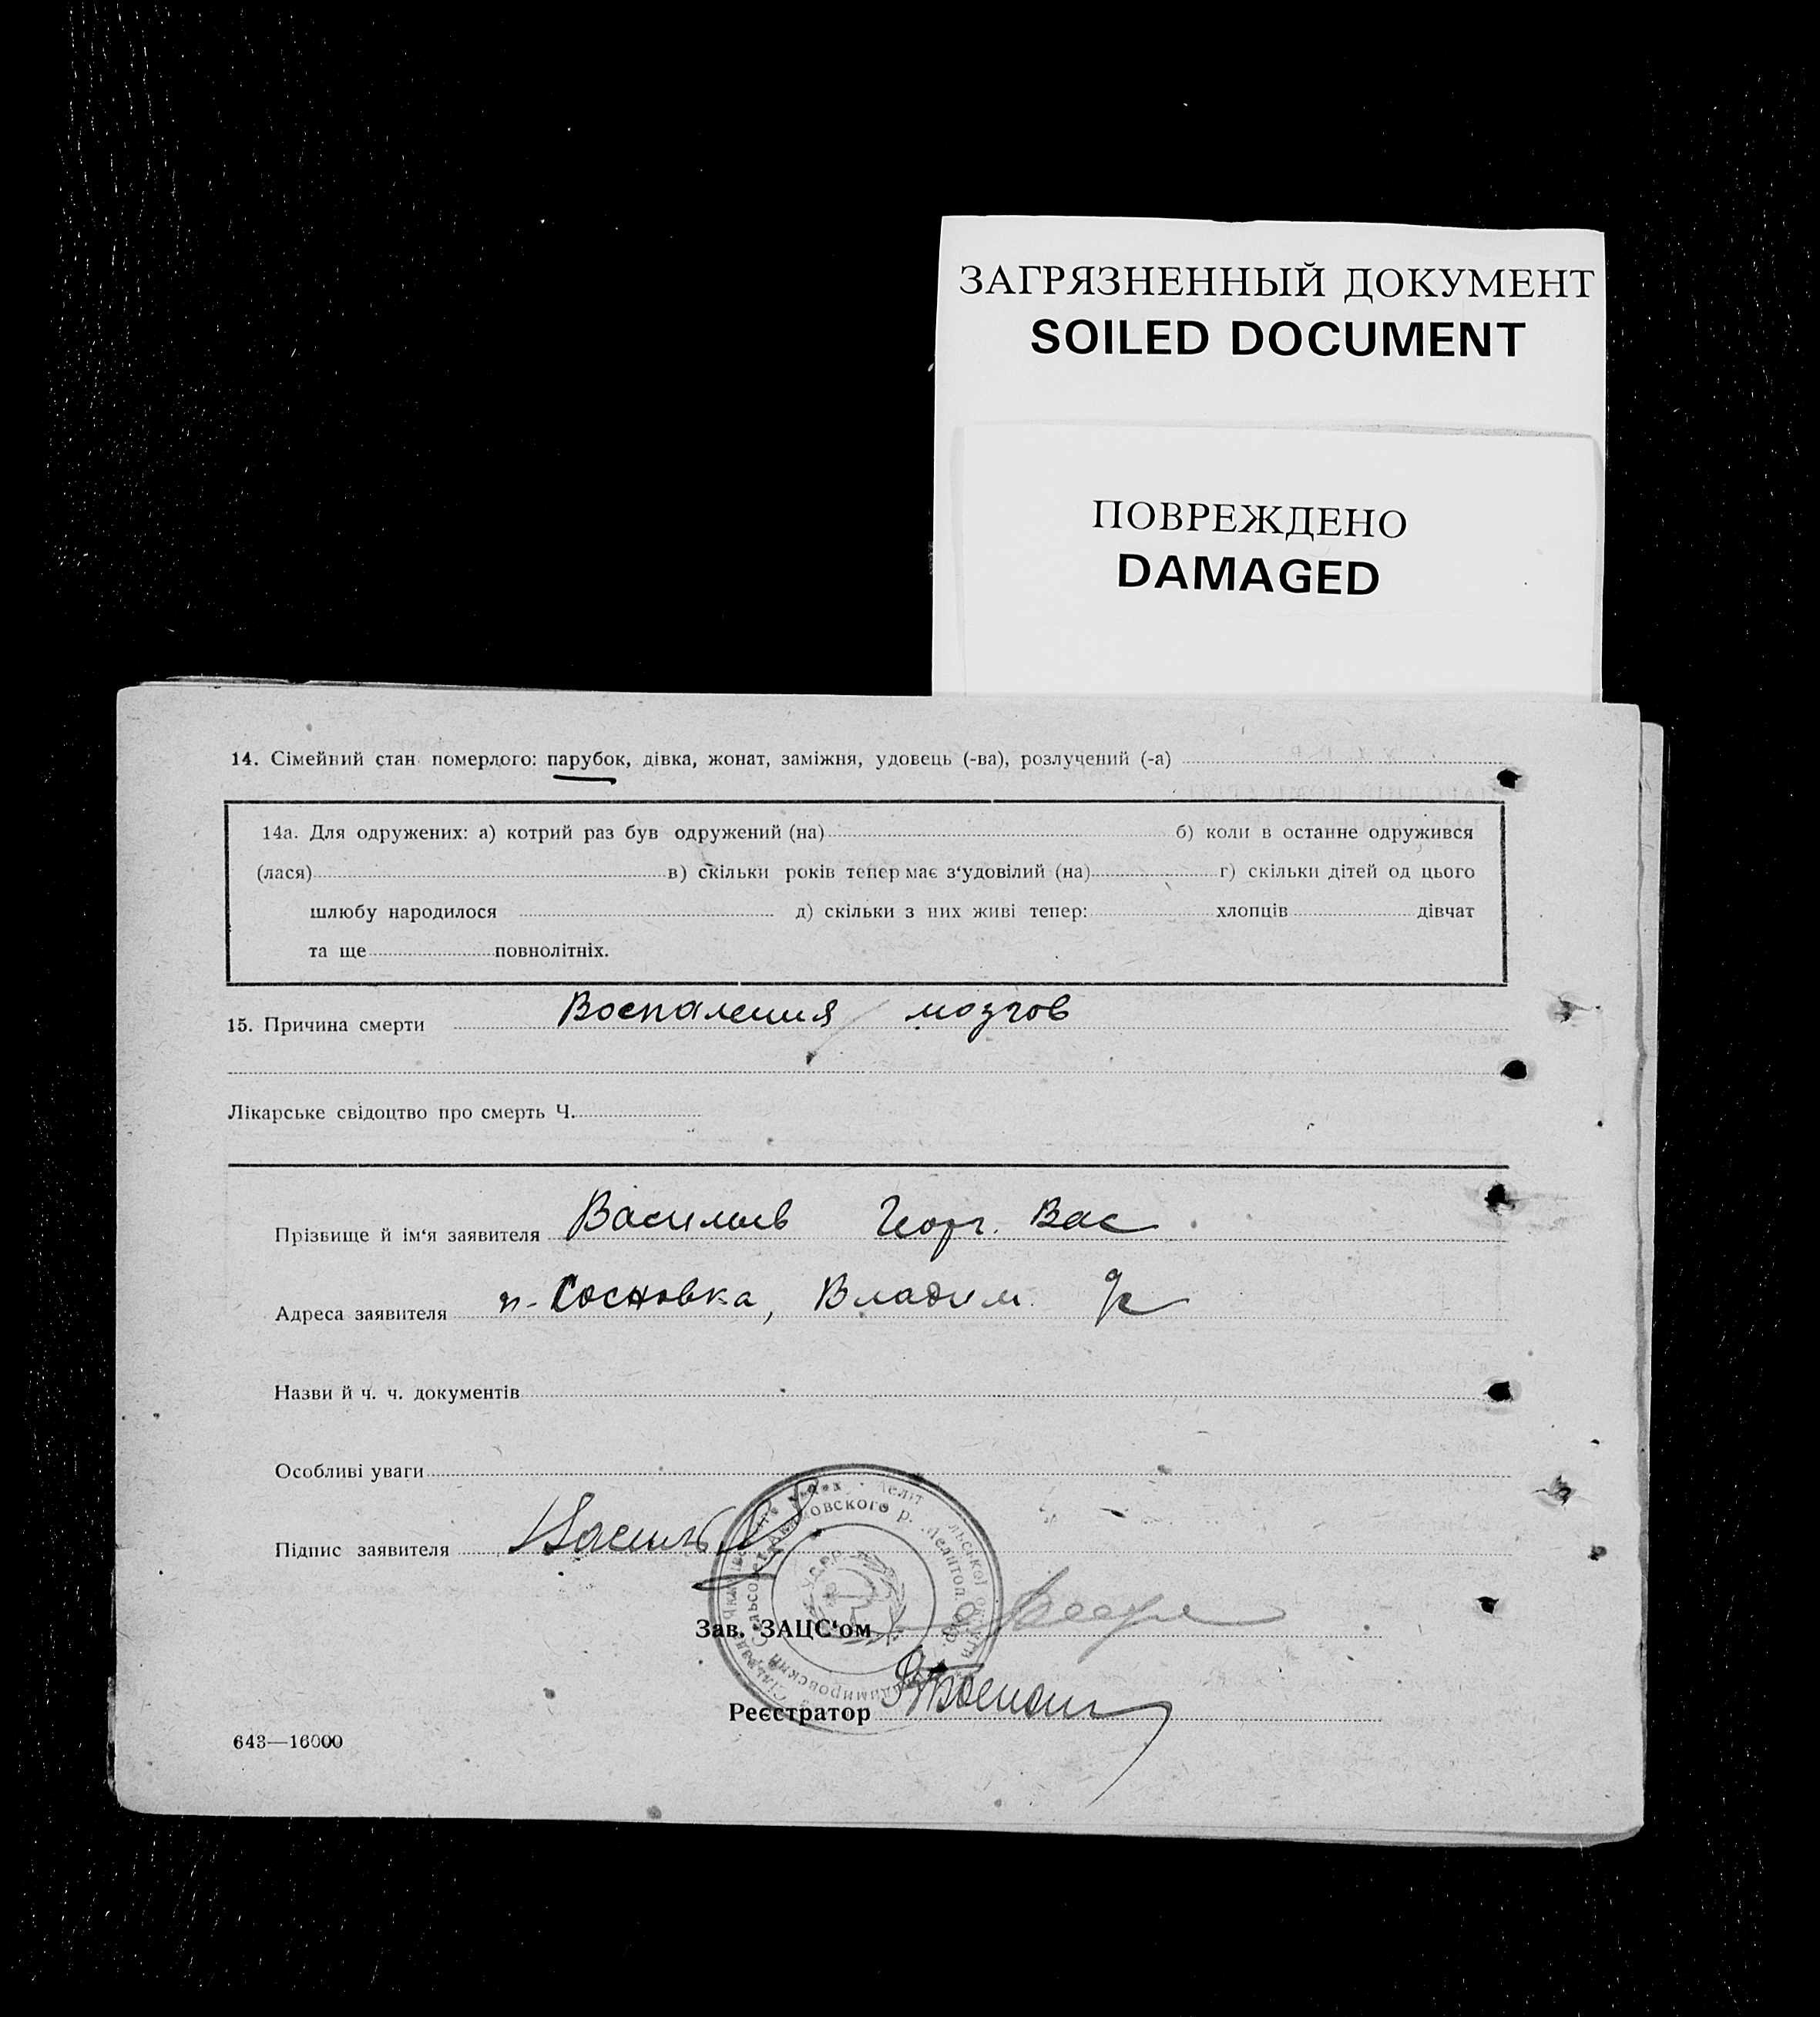 ЗАГРЯЗНЕННЫЙ ДОКУМЕНТ
SOILED DOCUMENT
ПОВРЕЖДЕНО
DAMAGED
14. Сімейний стан померлого: парубок, дівка, жонат, заміжня, удовець (-ва), розлучений (-а)
14а. Для одружених: а) котрий раз був одружений (на) б) коли в останне одружився
(лася) в) скільки років тепер має з‘удовілий (на) г) скільки дітей од цього
шлюбу народилося д) скільки з них живі тепер: хлопців дівчат
та ще повнолітніх.
15. Причина смерти Воспаления мозгов
Лікарське свідоцтво про смерть Ч.
Прізвище й ім‘я заявителя Васильев Георг. Вас
Адреса заявителя п. Сосновка, Владим.
Назви й ч. ч. документів
Особливі уваги
Підпис заявителя
Зав. ЗАЦС‘ом
Реєстратор
643—16000